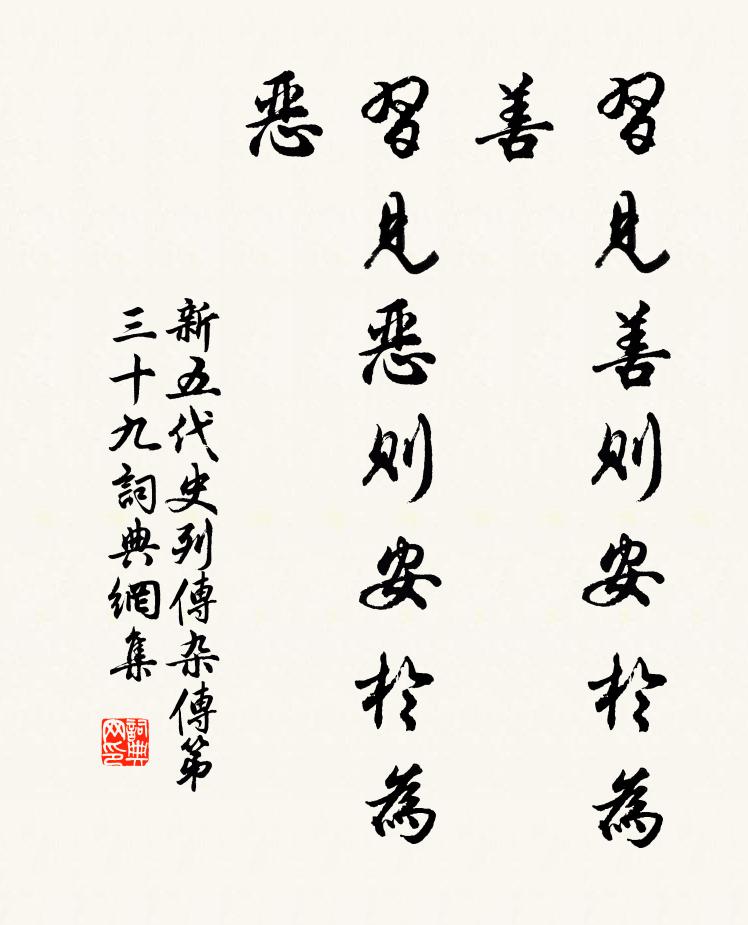 習見善則安於為
善
習見惡則安於為
惡
新五代史列傳杂傳第
三十九詞典網集
詞典
网印